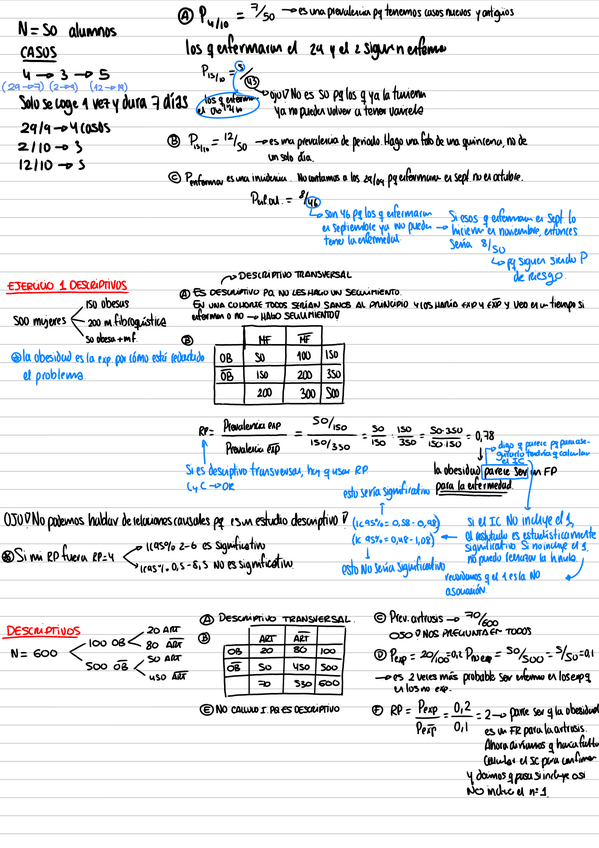 N = 50 alumnos
CASOS
4 → 3 → 5
(29→7) (2→9) (12→19)
Solo se coge 1 vez y dura 7 días
29/9 → 4 casos
2/10 → 3
12/10 → 5
Ⓐ P4/10 = 7/50 → es una prevalencia pq tenemos casos nuevos y antiguos
los q enfermaron el 29 y el 2 siguen enfermos
P15/10 = 5/43
los q enferman el día 12/10
→ ojo! No es 50 pq los q ya la tuvieron
ya no pueden volver a tener varicela
Ⓑ P15/10 = 12/50 → es una prevalencia de periodo. Hago una foto de una quincena, no de
un solo día.
Ⓒ Penfermar es una incidencia. No contamos a los 29/09 pq enfermaron en sept. no en octubre.
8/46
→ Son 46 pq los q enfermaron
en septiembre ya no pueden →
tener la enfermedad.
Si esos q enferman en sept. lo
hicieran en noviembre, entonces
sería 8/50
→ pq siguen siendo P
de riesgo.
EJERCICIO 1 DESCRIPTIVOS
500 mujeres
150 obesas
200 m. fibroquística
50 obesa + mf.
⊛ la obesidad es la exp por cómo está redactado
el problema.
→ DESCRIPTIVO TRANSVERSAL
Ⓐ ES DESCRIPTIVO PQ NO LES HAGO UN SEGUIMIENTO.
EN UNA COHORTE TODOS SERÍAN SANOS AL PRINCIPIO Y LOS HARÍA EXP Y EXP̅ Y VEO EN UN TIEMPO SI
enferman o no → HAGO SEGUIMIENTO!
Ⓑ
MF M̅F̅
OB 50 100 150
O̅B̅ 150 200 350
200 300 500
RP = Prevalencia exp / Prevalencia e̅x̅p̅ = 50/150 / 150/350 = 50/150 : 150/350 = 50·350/150·150 = 0,78
Si es descriptivo transversal, hay q usar RP
C y C → OR
→ digo q parece pq para ase-
gurarlo tendría q calcular
el IC
la obesidad parece ser un FP
para la enfermedad.
OJO! No podemos hablar de relaciones causales pq es un estudio descriptivo!
⊛ Si mi RP fuera RP=4
IC95% 2-6 es significativo
IC95% 0,5-8,5 NO es significativo
esto sería significativo
(IC95% = 0,58-0,98)
(IC 95% = 0,48-1,08)
esto No sería significativo
Si el IC NO incluye el 1,
el resultado es estadísticamente
significativo. Si no incluye el 1,
no puedo rechazar la h nula
recordamos q el 1 es la NO
asociación.
DESCRIPTIVOS
N = 600
100 OB
20 ART
80 A̅R̅T̅
500 O̅B̅
50 ART
450 A̅R̅T̅
Ⓐ DESCRIPTIVO TRANSVERSAL.
Ⓑ
ART A̅R̅T̅
OB 20 80 100
O̅B̅ 50 450 500
70 530 600
Ⓔ NO CALCULO I. PQ ES DESCRIPTIVO
Ⓒ Prev. artrosis → 70/600
OJO! NOS PREGUNTA EN TODOS
Ⓓ Pexp = 20/100 = 0,2 Pno exp = 50/500 = 5/50 = 0,1
→ es 2 veces más probable ser enfermo en los exp q
en los no exp.
Ⓕ RP = Pexp / Pe̅x̅p̅ = 0,2/0,1 = 2 → parece ser q la obesidad
es un FR para la artrosis.
Ahora diríamos q hace falta
calcular el IC para confirmar
y daríamos q pasa si incluye o si
NO incluye el nº 1.